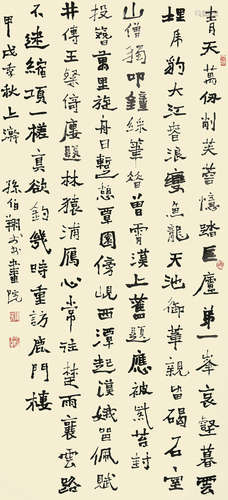 青天萬仞削芙蓉憶踏匡廬第一峯哀壑暮雲
埋虎豹大江春浪變魚龍天池御筆親皆碣石室
山僧獨叩鐘綵筆曾霄漢上舊題應被紫苔封
投簪萬里旋舟日暫憩園傍峴西潭起漢娥留佩賦
井傳王粲倚廔題林猿浦雁心常注楚雨襄雲路
不迷縮項一槎真欲釣幾時重訪鹿門樓
甲戌季秋上澣 孫伯翔書畫院